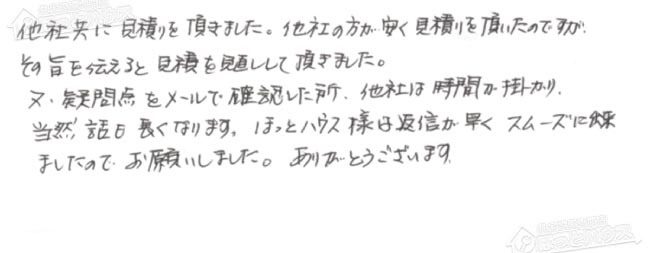 他社共に見積りを頂きました。他社の方が安く見積りを頂いたのですが
その旨を伝えると見積を見直しして頂きました。
又、疑問点をメールで確認した所、他社は時間が掛かり、
当然、話も長くなります。ほっとハウス様は返信が早くスムーズに出来
ましたので、お願いしました。ありがとうございます。
ほっとハウス